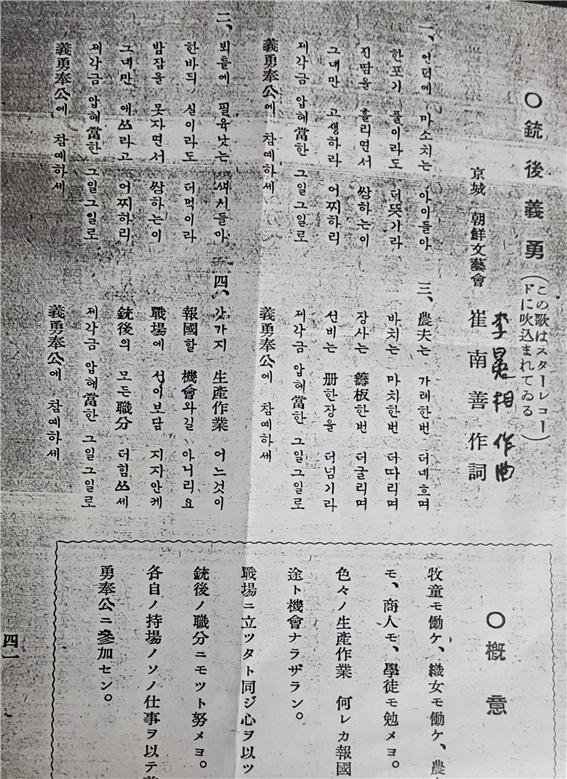 〇銃後義勇(この歌はスターレコー
ドに吹込まれてゐる)
李冕相 作曲
京城 朝鮮文藝會 崔南善 作詞
一、언덕에 마소치는 아이들아
한포기 풀이라도 더뜻기라
진땀을 흘리면서 쌈하는이
그네만 고생하라 어찌하리
제각금 압헤當한 그일그일로
義勇奉公에 참예하세
二、뵈틀에 필육낫는 색시들아
한바듸 실이라도 더먹이라
밤잠을 못자면서 쌈하는이
그네만 애쓰라고 어찌하리
제각금 압헤當한 그일그일로
義勇奉公에 참예하세
三、農夫는 가래한번 더네흐며
바치는 마치한번 더따리며
장사는 籌板한번 더굴리며
선비는 册한장을 더넘기라
제각금 압헤當한 그일그일로
義勇奉公에 참예하세
四、갓가지 生產作業 어느것이
報國할 機會와길 아니리요
戰場에 서아보담 지지안케
銃後의 모든職分 더힘쓰세
제각금 압헤當한 그일그일로
義勇奉公에 참예하세
〇概意
牧童モ働ケ、織女モ働ケ、農
モ、商人モ、學徒モ勉メヨ。
色々ノ生産作業 何レカ報國
途ト機會ナラザラン。
戰場ニ立ツタト同ジ心ヲ以ツ
銃後ノ職分ニモツト努メヨ。
各自ノ持場ノソノ仕事ヲ以テ
勇奉公ニ參加セン。
四一